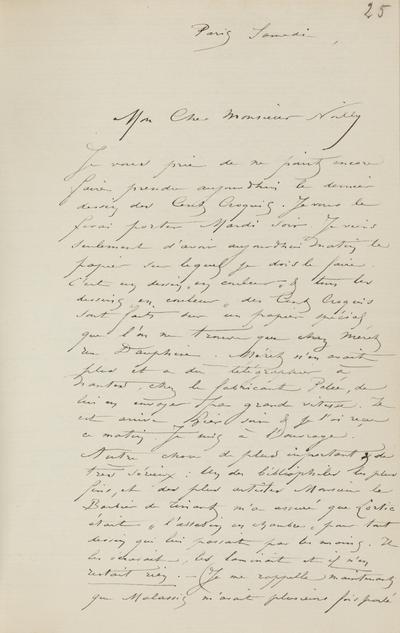 25
Paris Samedi,
Mon Cher Monsieur Noilly
Je vous prie de ne point encore
faire prendre aujourd'hui le dernier
dessin des Cent Croquis. Je vous le
ferai porter Mardi soir. Je viens
seulement d'avoir aujourd'hui matin le
papier sur lequel je dois le faire.
C'est un dessin en couleur & tous les
dessins en couleur des Cent Croquis
sont faits sur un papier spécial
que l'on ne trouve que chez
rue Dauphine. n'en avait
plus et a dû télégraphier à
Nantes, chez le fabricant de
lui en envoyer par grande vitesse. Il
est arrivé hier soir & je l'ai reçu
ce matin. Je suis à l'ouvrage.
Autre chose de plus important & de
très sérieux : Un des bibliophiles les plus
fins, et des plus artistes Monsieur le
Barbier de Tinan, m'a assuré que
était "l'assassin en chambre" pour tout
dessin qui lui passait par les mains. Il
les écrasait, les laminait et il n'en
restait rien. — (Je me rappelle maintenant
que Malassis m'avait plusieurs fois parlé